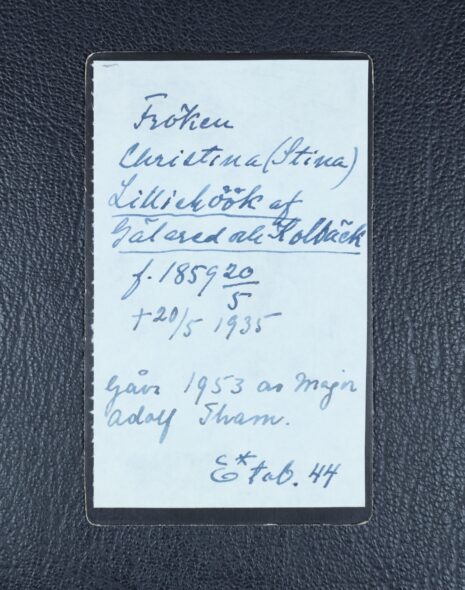 Fröken
Christina (Stina)
Lilliehöök af
Gälared och Kolbäck
f. 1859 20/5
† 20/5 1935
Gåva 1953 av Major
Adolf Tham.
E* tab. 44